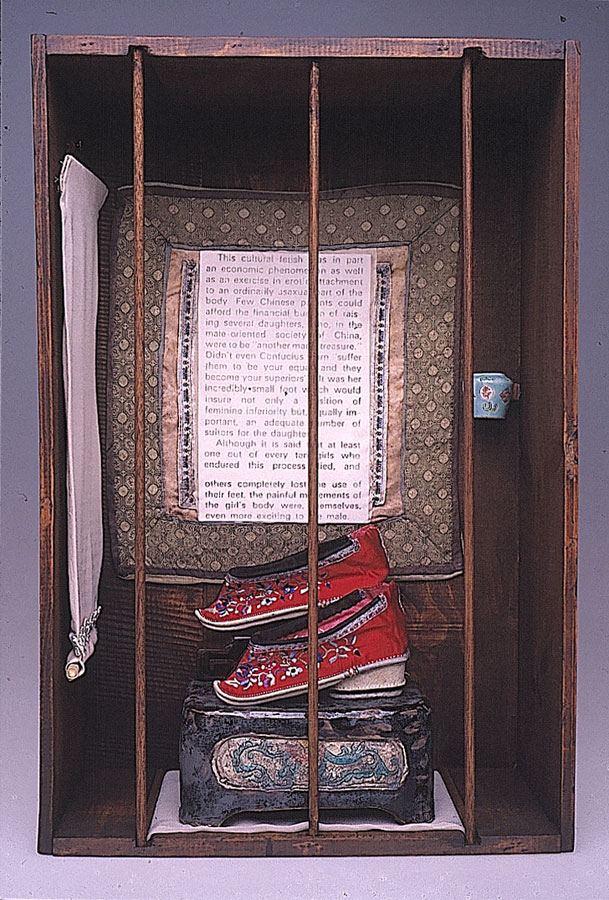 This cultural fetish was in part
an economic phenomenon as well
as an exercise in erotic attachment
to an ordinarily asexual part of the
body. Few Chinese parents could
afford the financial burden of rais-
ing several daughters, who, in the
male-oriented society of China,
were to be "another man's treasure."
Didn't even Confucius warn "suffer
them to be your equal and they
become your superiors" It was her
incredibly small foot which would
insure not only a position of
feminine inferiority but, equally im-
portant, an adequate number of
suitors for the daughter
Although it is said that at least
one out of every ten girls who
endured this process died, and
others completely lost the use of
their feet, the painful movements of
the girl's body were, themselves,
even more exciting to the male.